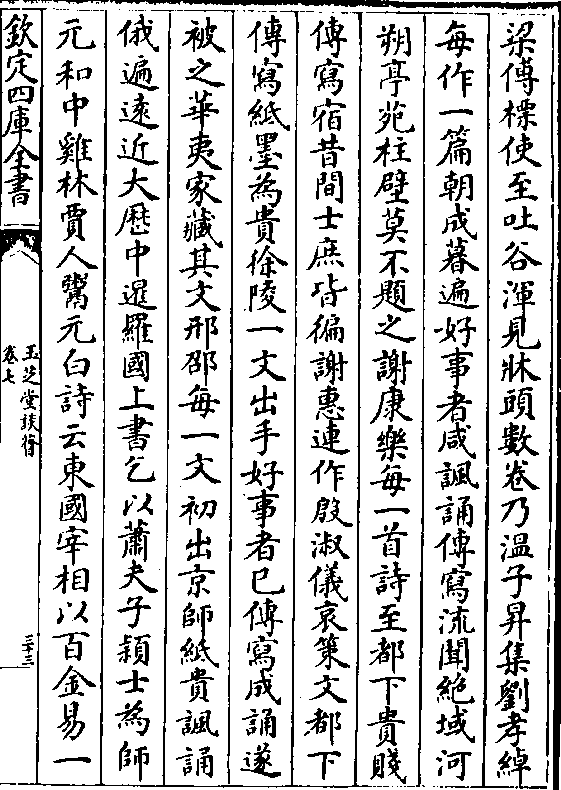 梁傅㯹使至吐谷渾見牀頭數卷乃溫子昇集劉孝綽
每作一篇朝成暮遍好事者咸諷誦傳寫流聞絕域河
朔亭苑柱壁莫不題之謝康樂每一首詩至都下貴賤
傳寫宿昔間士庶皆徧謝惠連作殷淑儀哀策文都下
傳寫紙墨為貴徐陵一文出手好事者已傳寫成誦遂
被之華夷家藏其文邢邵每一文初出京師紙貴諷誦
俄遍遠近大歷中暹羅國上書乞以蕭夫子穎士為師
元和中雞林賈人鬻元白詩云東國宰相以百金易一
欽定四庫全書
玉芝堂談薈
卷七
三十三